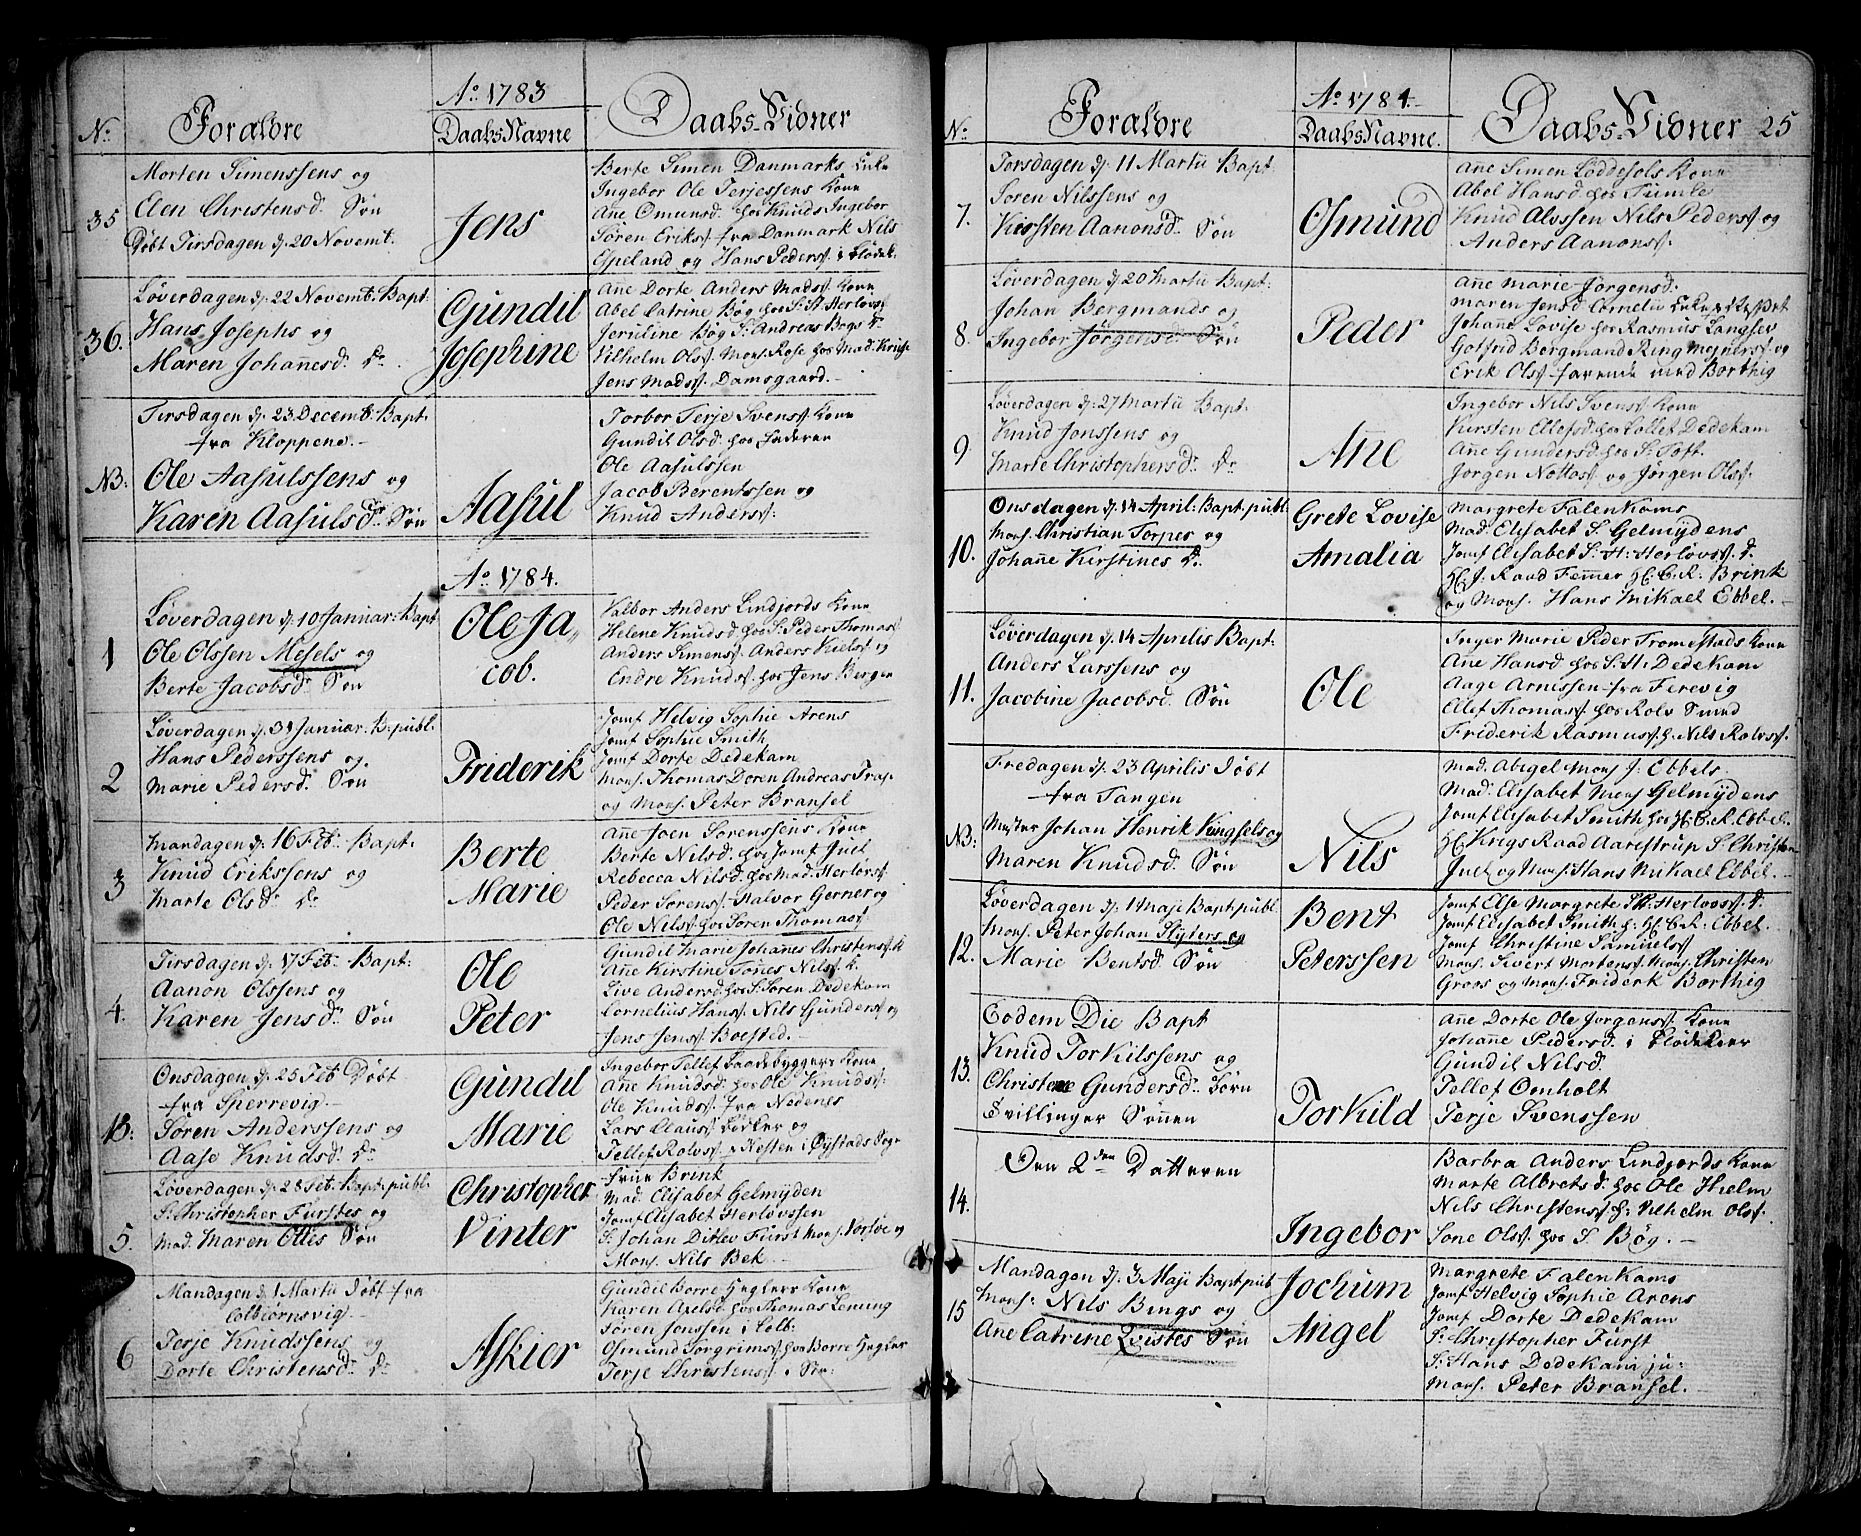 Aº 1783
Nº
Forældre
DaabsNavne
Daabs-Vidner
35
Morten Simenssens og
Elen Christensd. Søn
Døbt Tirsdagen d. 20 Novemt.
Jens
Berte Simen Danmarks Enke
Ingebor Ole Terjessens Kone
Ane Omunsd. hos Knuds Ingebor
Sören Eriks. fra Danmark Nils
og Hans Peders. i
36.
Løverdagen d. 22 Novemb. Bapt:
Hans Josephs og
Maren Johañesd. Dr.
Gundil
Josephine
Añe Dorte Anders Mads. Kone
Abel Catrine Bøg hos S. St. Herlovs.
Jeruline Bøg S. Andreas Bøgs D.
Vilhelm Ols. Mons. Rose hos Mad. Krise
Jens Mads. Damsgaard.
NB:
Tirsdagen d. 23 Decemb: Bapt:
fra Kloppene.
Ole Aasulssens og
Karen Aasulsd. Søn
Aasul
Torbor Terje Svens. Kone
Gundil Olsd. hos Faderen
Ole Aasulssen
Jacob Berentssen og
Knud Anders.
Aº 1784.
1
Løverdagen d. 10 Januar: Bapt
Ole Olssen Mesels og
Berte Jacobsd. Søn
Ole Ja,
cob.
Valbor Anders Lindjords Kone
Helene Knudsd. hos S. Peder Thomas.
Anders Simens. Anders Niels. og
Endre Knuds. hos Jens Bergen
2
Løverdagen d. 31 Januar: B. publ.
Hans Pederssens og
Marie Pedersd. Søn
Friderik
Jomf Helvig Sophie Arens
Jomf Sophie Smith
Jomf Dorte Dedekam
Mons. Thomas Doren Andreas Trap
og Mons. Peter Bransel
3
Mandagen d. 16 Feb. Bapt.
Knud Erikssens og
Marte Olsd. Dr
Berte
Marie
Añe Joen Sörenssens Kone
Berte Nilsd. hos Jomf Juel
Rebecca Nilsd. hos Mad. Herlovs.
Peder Sørens. Halvor Gerner og
Ole Nils. hos Søren Thomas.
4.
Tirsdagen d. 17 Feb. Bapt:
Aanon Olssens og
Karen Jensd. Søn
Ole
Peter
Gundil Marie Johanes Christens. K
Añe Kirstine Tønes Nils. K.
Live Andersd. hos S. Søren Dedekam
Cornelius Hans. Nils Gunders. og
Jens Jens. Boested.
NB:
Onsdagen d. 25 Feb Døbt
fra Sperrevig.
Søren Anderssens og
Aase Knudsd. Dr
Gundil
Marie
Ingebor Tellef Baadebyggers Kone
Añe Knudsd. hos Ole Knuds.
Ole Knuds. fra Nedenes
Lars Claus. og
Tellef Rolvs. i Øystads Sogn
5.
Løverdagen d. 28 Feb. Bapt. publ.
S. Christopher Fürstes og
Mad. Maren Ottes Søn
Christopher
Vinter
Frue Brink
Mad. Elisabet Gelmÿden
Jomf Elisabet Herlovssen
S. Johan Ditlev Fürst Mons. og
Mons. Nils Bek
6
Mandagen d. 1 Martii Døbt fra
Colbiørnsvig
Terje Knudssens og
Dorte Christensd. Dr
Askier
Gundil Borre Heglers Kone
Karen Axelsd. hos Thomas Lening
Søren Jonssen i Colb:
Osmund Torgrims. hos Borre Hegler
Terje Christens.
Aº 1784.
Nº
Forældre
DaabsNavne.
Daabs-Vidner 25
7.
Torsdagen d. 11 Martii Bapt:
Søren Nilssens og
Kiersten Aanonsd. Søn
Osmund
Añe Simen Løddesøls Kone
Abel Hansd. hos Tumle
Knud Alvssen Nils Peders. og
Anders Aanons.
8.
Løverdagen d. 20 Martii Bapt:
Johan Bergmands og
Ingebor Jörgensd. Søn
Peder
Añe Marie Jörgensd.
Maren Jensd. Cornelii Enke
Johañe Lovise hos Rasmus Langfev
Gotfrid Bergmand Ring Meyners. og
Erik Ols. farende med Borthig
9
Løverdagen d. 27 Martii Bapt:
Knud Jonssens og
Marte Christophersd. Dr
Añe
Ingebor Nils Svens. Kone
Kirsten Ellefsd. hos Tollef Dedekam
Añe Gundersd. hos S. Toft.
Jörgen Nottos. og Jörgen Ols.
10.
Onsdagen d. 14 April: Bapt. publ.
Mons. Christian Torpes og
Johañe Kirstines Dr
Grete Lovise
Amalia
Margrete Falenkams
Mad. Elisabet S. Gelmÿdens
Jomf Elisabet S. H. Herlovs. D.
Hr. J. Raad Femmer Hr. C. R. Brink
og Mons. Hans Mikael Ebbel.
11.
Løverdagen d. 14 Aprilis Bapt:
Anders Larssens og
Jacobine Jacobsd. Søn
Ole
Inger Marie Peder Tromestads Kone
Añe Hansd. hos S. H. Dedekam
Aage Arnessen fra Ferevig
Ellef Thomas. hos Rolv Smed
Friderik Rasmus. h. Nils Rolvs.
NB:
Fredagen d. 23 Aprilis Døbt
fra Tangen
Mester Johan Henrik Kingsels og
Maren Knudsd. Søn
Nils
Mad. Abigel Mons J. Ebbels
Mad. Elisabet Mons Gelmÿdens
Jomf Elisabet Smith hos Hr. C. R. Ebbel.
Hr. Krigs Raad Aarestrup S. Christen
Juel og Mons. Hans Mikael Ebbel.
12.
Løverdagen d. 1 Maji Bapt. publ.
Mons. Peter Johan Slÿters og
Marie Bentsd. Søn
Bent
Peterssen
Jomf Else Margrete St. Herlovs. D.
Jomf Elisabet Smith h: Hr. C. R. Ebbel.
Jomf Christine Samuels.
Mons. Sivert Mortens. Mons. Christen
Groos og Mons. Friderk Borthig
13.
Eodem Die Bapt
Knud Torkilssens og
Christene Gundersd. Børn
Tvillinger Sønen
Torkild
Añe Dorte Ole Jørgens. Kone
Johañe Pedersd. i
Gundil Nilsd.
Tellef Omholt
Terje Svenssen
14.
Den 2den Datteren
Ingebor
Barbra Anders Lindjords Kone
Marte Albretsd. hos Ole Hielm
Nils Christens. h. Vilhelm Ols.
Sone Ols. hos S. Bøg.
15
Mandagen d. 3 Maji Bapt pub
Mons. Nils Bings og
Añe Catrine Qvistes Søn
Jochum
Angel
Margrete Falenkams
Jomf Helvig Sophie Arens
Jomf Dorte Dedekam
S. Christopher Fürst
S. Hans Dedekam ju:
Mons. Peter Bransel.